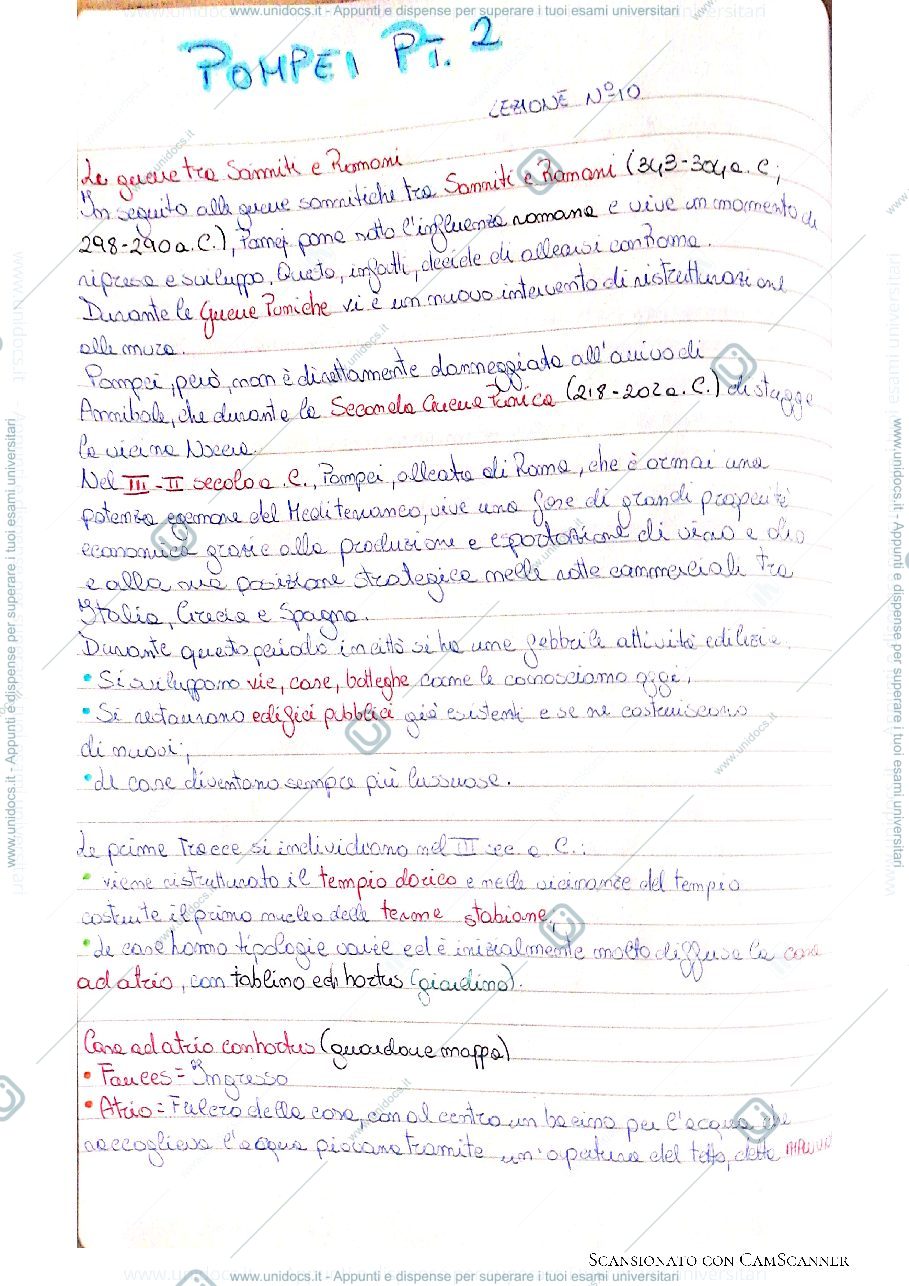 www.unidocs.it - Appunti e dispense per superare i tuoi esami universitari
POMPEI PT. 2
LEZIONE N°10
Le guerre tra Sanniti e Romani
In seguito alle guerre sannitiche tra Sanniti e Romani (343-304 a.C;
298-290 a.C.), Pompei pone sotto l'influenza romana e vive un momento di
ripresa e sviluppo. Questa, infatti, decide di allearsi con Roma.
Durante le Guerre Puniche vi è un nuovo intervento di ristrutturazione
alle mura.
Pompei, però, non è direttamente danneggiata all'arrivo di
Annibale, che durante la Seconda Guerra Punica (218-202 a.C.) distrugge
la vicina Nocera.
Nel III-II secolo a C., Pompei, alleata di Roma, che è ormai una
potenza egemone del Mediterraneo, vive una fase di grande prosperità
economica grazie alla produzione e esportazione di vino e olio
e alla sua posizione strategica nelle rotte commerciali tra
Italia, Grecia e Spagna.
Durante questo periodo in città si ha una febbrile attività edilizia.
• Si sviluppano vie, case, botteghe come le conosciamo oggi;
• Si restaurano edifici pubblici già esistenti e se ne costruiscono
di nuovi;
• Le case diventano sempre più lussuose.
Le prime tracce si individuano nel III sec. a C.:
• viene ristrutturato il tempio dorico e nelle vicinanze del tempio
costruite il primo nucleo delle terme stabiane;
• Le case hanno tipologie varie ed è inizialmente molto diffusa la casa
ad atrio, con tablino ed hortus (giardino).
Casa ad atrio con hortus (guardare mappa)
• Fauces = Ingresso
• Atrio = Fulcro della casa, con al centro un bacino per l'acqua che
raccoglieva l'acqua piovana tramite un'apertura del tetto, detta
SCANSIONATO CON CAMSCANNER
www.unidocs.it - Appunti e dispense per superare i tuoi esami universitari